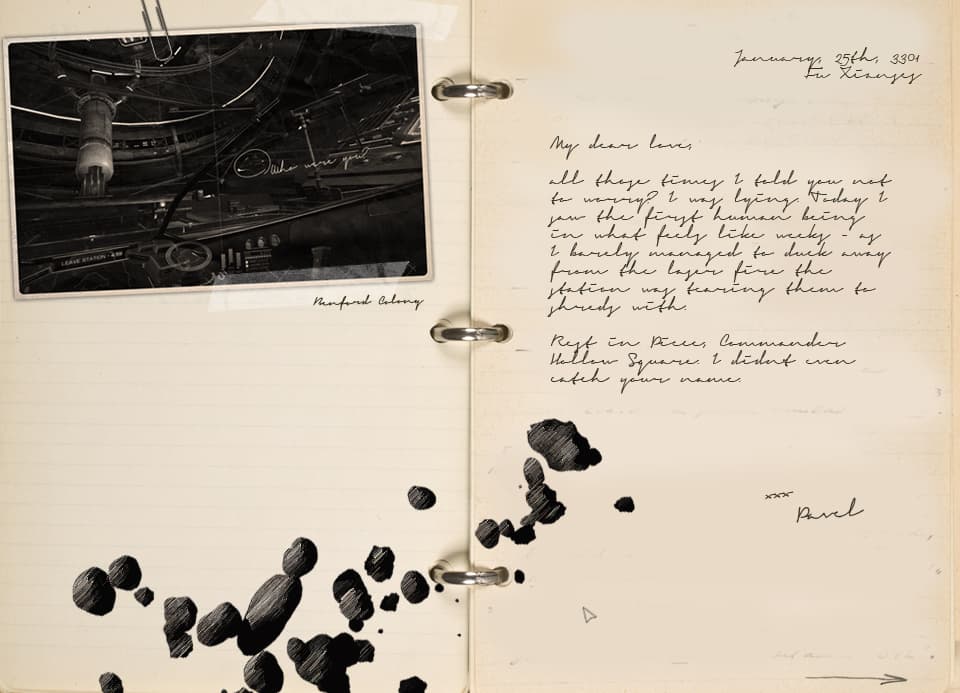 who were you?
LEAVE STATION
Benford Colony
January, 25th, 3301
Fu Xianses
My dear love,
all those times I told you not
to worry? I was lying. Today I
saw the first human being
in what feels like weeks - as
I barely managed to duck away
from the laser fire the
station was tearing them to
shreds with.
Rest in Piece, Commander
Hollow Square. I didnt even
catch your name.
xxx
Pavel